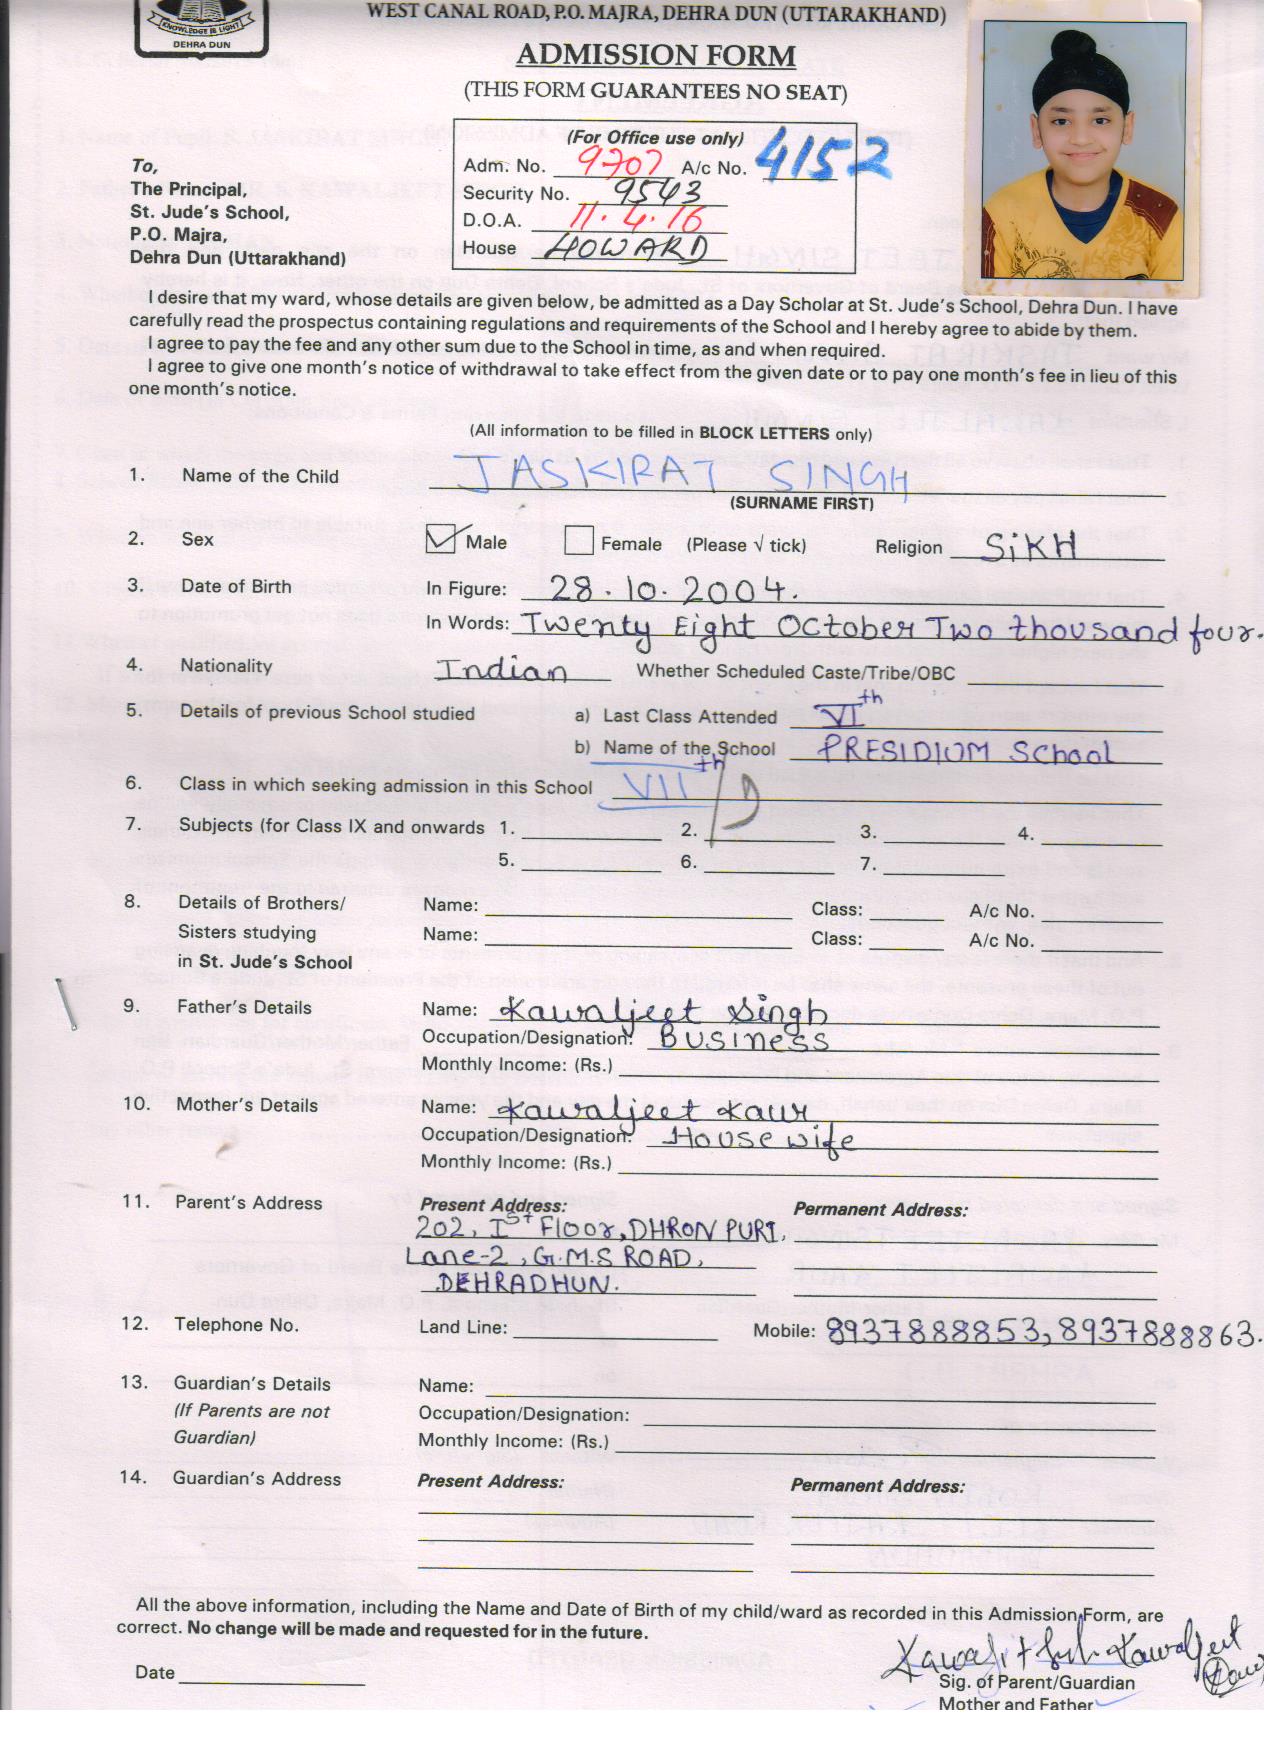 WEST CANAL ROAD, P.O. MAJRA, DEHRA DUN (UTTARAKHAND)
KNOWLEDGE IS LIGHT
DEHRA DUN
ADMISSION FORM
(THIS FORM GUARANTEES NO SEAT)
(For Office use only)
Adm. No. 9707 A/c No. 4152
Security No. 9543
D.O.A. 11.4.16
House HOWARD
To,
The Principal,
St. Jude's School,
P.O. Majra,
Dehra Dun (Uttarakhand)
I desire that my ward, whose details are given below, be admitted as a Day Scholar at St. Jude's School, Dehra Dun. I have
carefully read the prospectus containing regulations and requirements of the School and I hereby agree to abide by them.
I agree to pay the fee and any other sum due to the School in time, as and when required.
I agree to give one month's notice of withdrawal to take effect from the given date or to pay one month's fee in lieu of this
one month's notice.
(All information to be filled in BLOCK LETTERS only)
1. Name of the Child JASKIRAT SINGH
(SURNAME FIRST)
2. Sex Male Female (Please √ tick) Religion SiKH
3. Date of Birth In Figure: 28.10.2004.
In Words: Twenty Eight October Two thousand four.
4. Nationality Indian Whether Scheduled Caste/Tribe/OBC
5. Details of previous School studied a) Last Class Attended VI th
b) Name of the School PRESIDIUM School
6. Class in which seeking admission in this School VII th / D
7. Subjects (for Class IX and onwards 1. 2. 3. 4.
5. 6. 7.
8. Details of Brothers/ Name: Class: A/c No.
Sisters studying Name: Class: A/c No.
in St. Jude's School
9. Father's Details Name: Kawaljeet Singh
Occupation/Designation: Business
Monthly Income: (Rs.)
10. Mother's Details Name: Kawaljeet Kaur
Occupation/Designation: House wife
Monthly Income: (Rs.)
11. Parent's Address Present Address: Permanent Address:
202, Ist Floor, DHRON PURI,
Lane-2, G.M.S ROAD,
DEHRADHUN.
12. Telephone No. Land Line: Mobile: 8937888853, 8937888863.
13. Guardian's Details Name:
(If Parents are not Occupation/Designation:
Guardian) Monthly Income: (Rs.)
14. Guardian's Address Present Address: Permanent Address:
All the above information, including the Name and Date of Birth of my child/ward as recorded in this Admission Form, are
correct. No change will be made and requested for in the future.
Kawaljit Singh Kawaljeet Kaur
Date Sig. of Parent/Guardian
Mother and Father